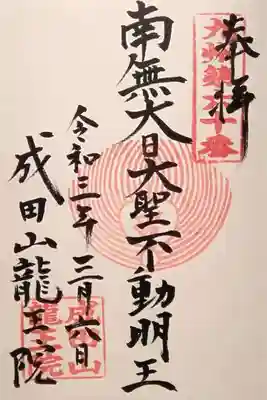 奉拝
南無大日大聖不動明王
令和三年三月六日
成田山龍王院
成田山
龍王院